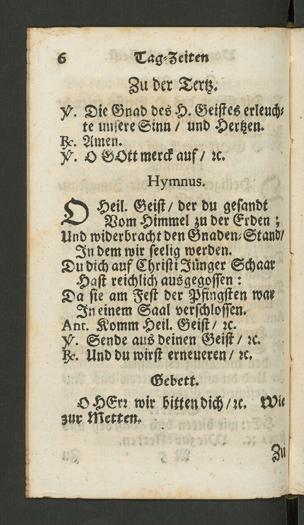 6 Tag-Zeiten
Zu der Tertz.
℣. Die Gnad des H. Geistes erleuch-
te unsere Sinn / und Hertzen.
℟. Amen.
℣. O GOtt merck auf / ꝛc.
Hymnus.
O Heil. Geist / der du gesandt
Vom Himmel zu der Erden ;
Und widerbracht den Gnaden-Stand /
In dem wir seelig werden.
Du dich auf Christi Jünger Schaar
Hast reichlich ausgegossen :
Da sie am Fest der Pfingsten war
In einem Saal verschlossen.
Ant. Komm Heil. Geist / ꝛc.
℣. Sende aus deinen Geist / ꝛc.
℟. Und du wirst erneueren / ꝛc.
Gebett.
O HErr wir bitten dich / ꝛc. Wie
zur Metten.
Zu